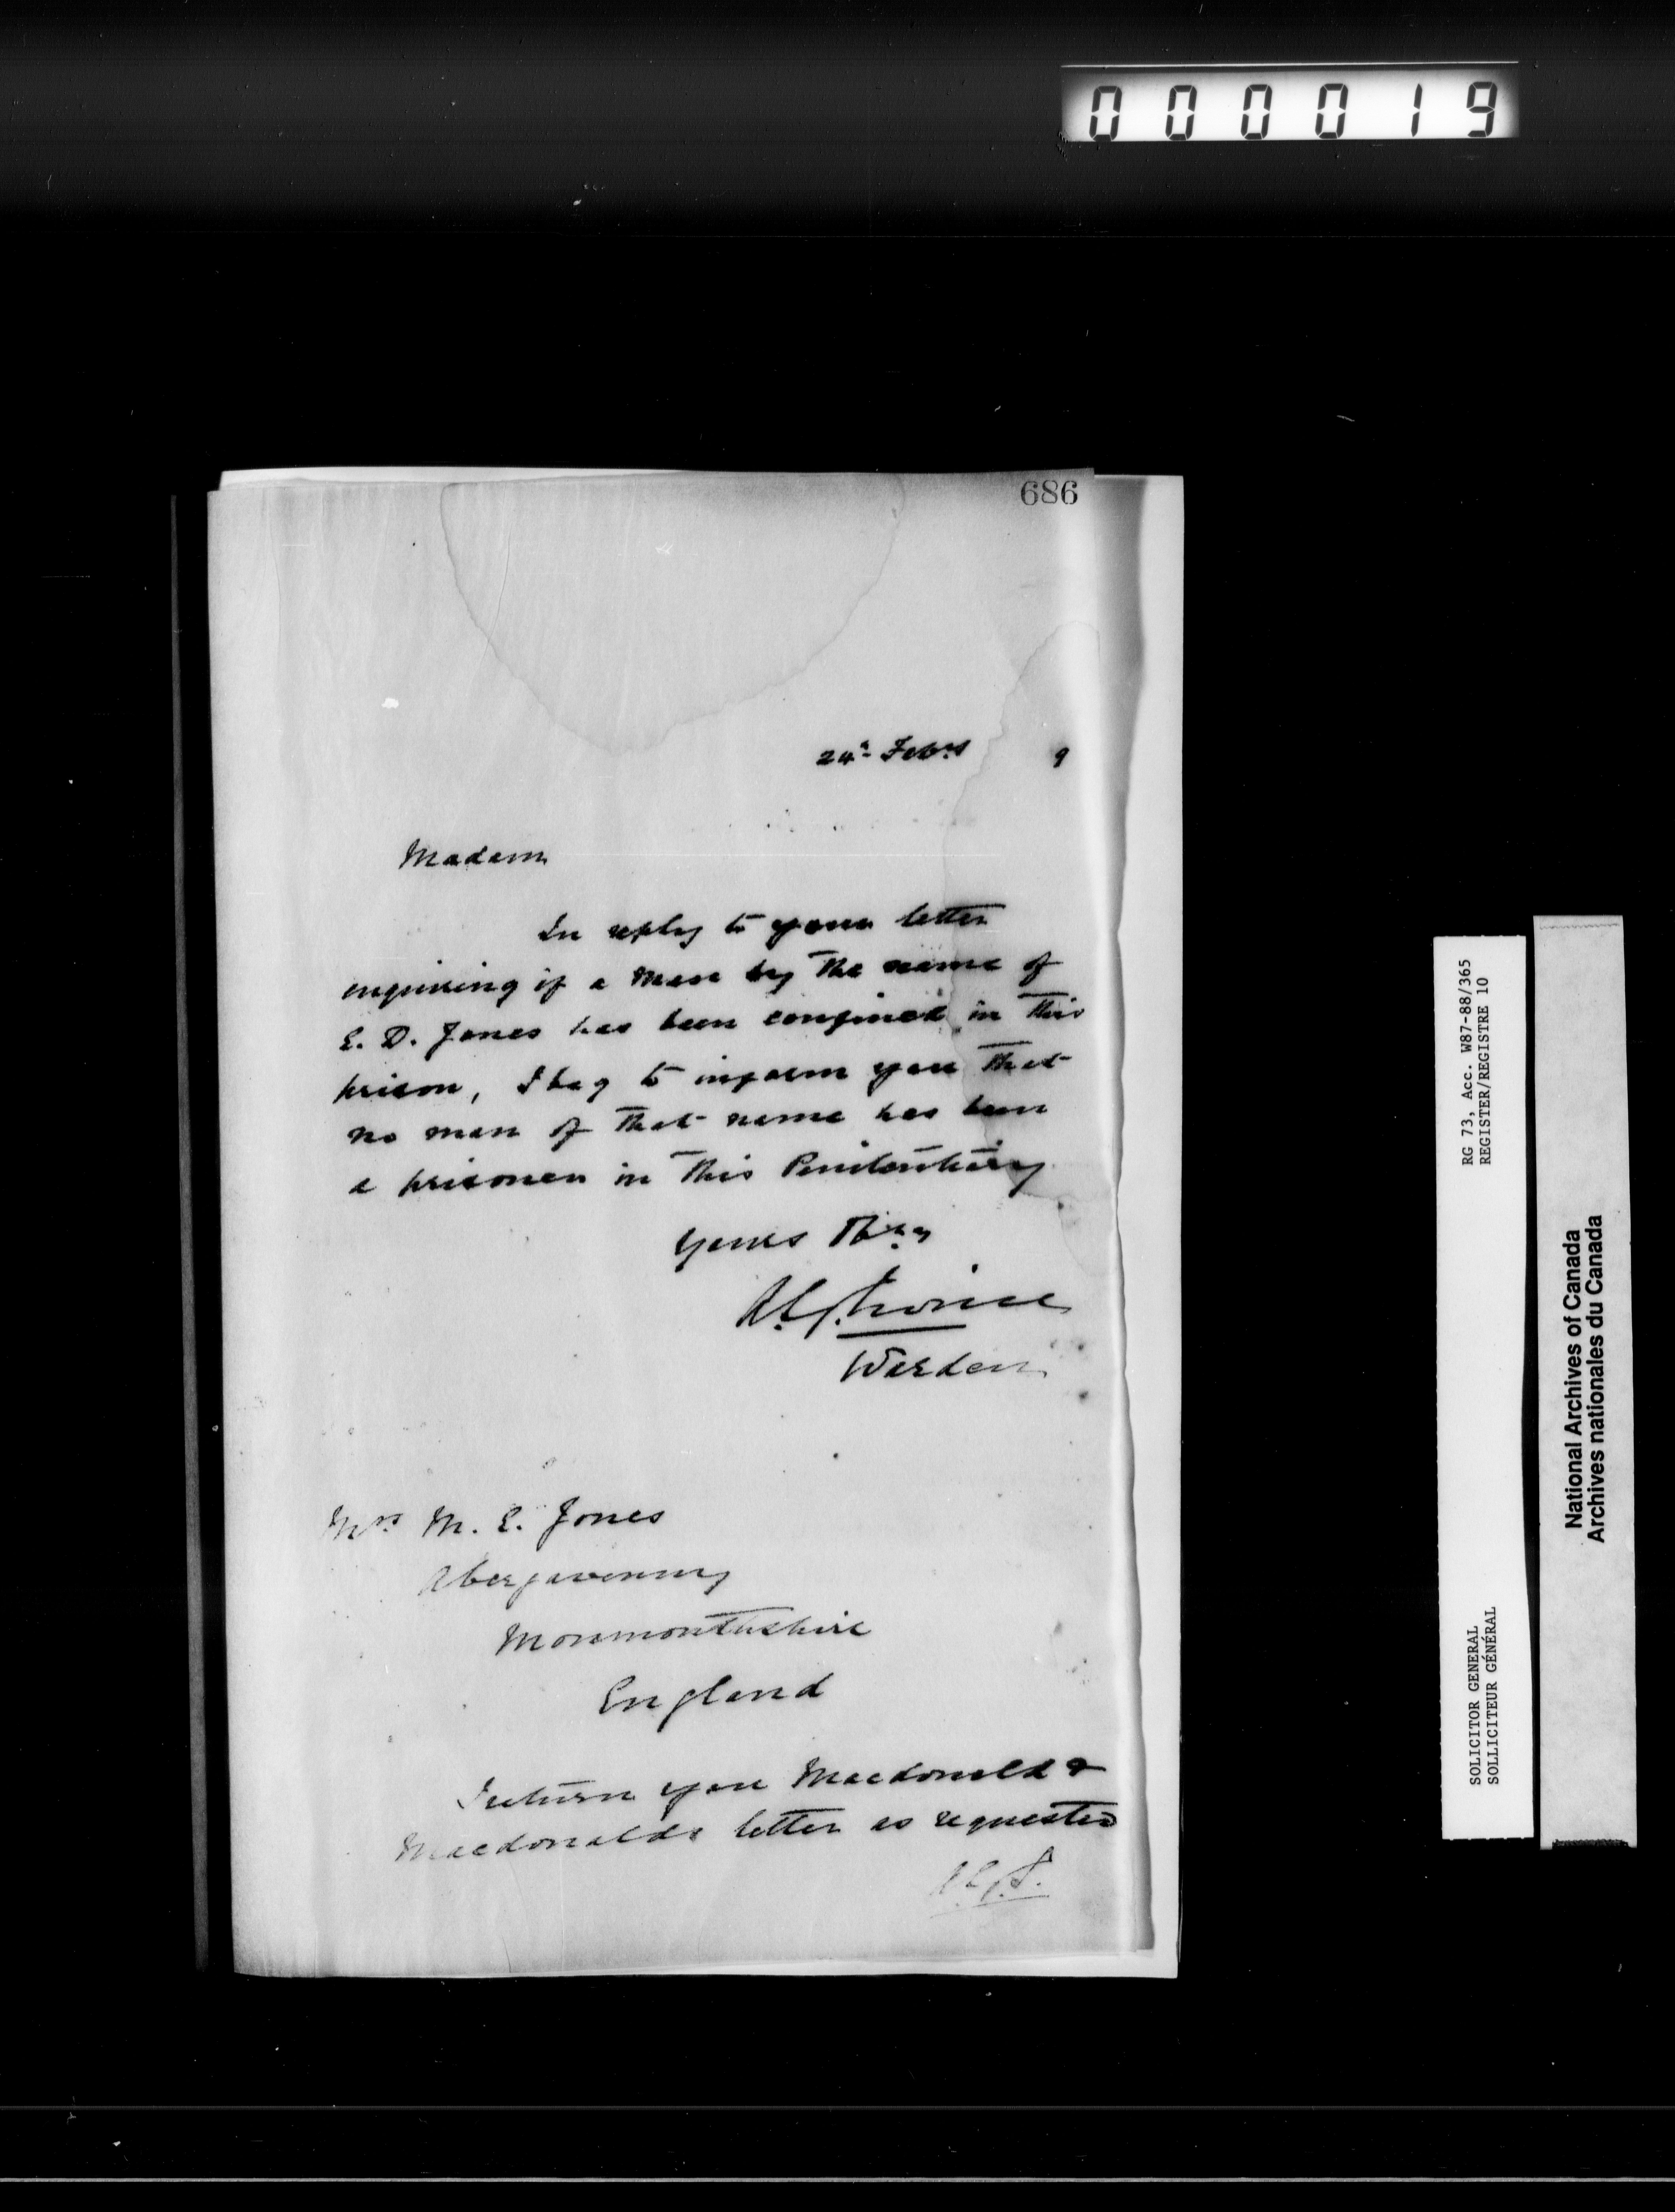 000019
686
24th Febry 9
Madam
In reply to your letter
enquiring if a man by the name of
E. D. Jones has been confined in this
prison, I beg to inform you that
no man of that name has been
a prisoner in this Penitentiary
Yours
Warden
Mrs M. E. Jones
Abergavenny
Monmouthshire
England
I return you Macdonald &
Macdonalds letter as requested
RG 73, Acc. W87-88/365
REGISTER/REGISTRE 10
SOLICITOR GENERAL
SOLLICITEUR GÉNÉRAL
National Archives of Canada
Archives nationales du Canada